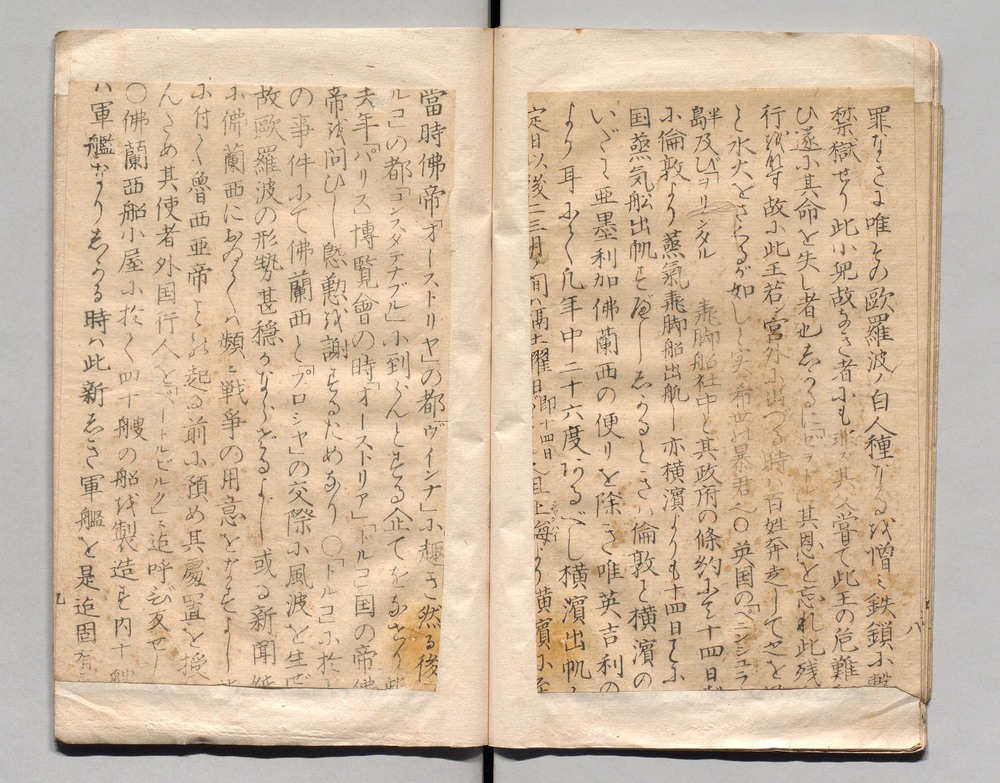 罪なきに唯その歐羅波ノ白人種なるを憎ミ鉄鎖に繫
禁獄せり此小児故なき者にも非ズ其人嘗て此王の危難
ひ遂に其命を失し者也しかるに「セヲトル」其恩を忘れ此残
行を為す故に此王若シ宮外に出づる時ハ百姓奔走してやを
と水火をさくるが如しと実ニ希世の暴君〜〇英国の「ペニンシュラ
及び「ヲリンタル 飛脚船社中と其政府の條約にて十四日
に倫敦より蒸氣飛脚船出航し亦横濱よりも十四日とに
国蒸気船出帆すべししかるときハ倫敦と横濱の
いだに亜墨利加佛蘭西の便りを除き唯英吉利の
より耳にて凡年中二十六度なるべし横濱出帆
定日以後二三月ノ間ハ隔土曜日 即十四日 上海より横濱に
當時佛帝「オーストリヤ」の都「ヴインナ」に趣き然る後
ルコ」の都「コンスタテナブル」に到らんとする企てをなせり
去年「パリス」博覧會の時「オーストリア」「ドルコ」国の帝佛
帝を問ひし慇懃を謝するためなり 〇「トルコ」に於
の事件にて佛蘭西と「プロシヤ」の交際に風波を生ぜ
故歐羅波の形勢甚穏かならざるよし或る新聞
に佛蘭西におゐてハ頻ニ戦争の用意をなすよし
に付て魯西亜帝ことの起る前に預め其處置を授
んため其使者外国行人を「ペートルビルク」ニ迠呼び反せし
〇佛蘭西船小屋に於て四十艘の船を製造す内十
ハ軍艦なりしかる時ハ此新しき軍艦と是迠固有